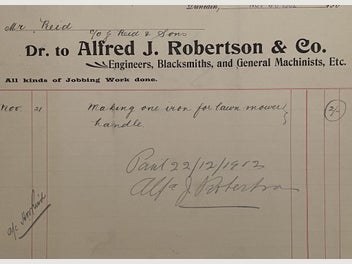 Dunedin,
Mr. Reid
c/o J Reid & Sons
Dr. to Alfred J. Robertson & Co.
Engineers, Blacksmiths, and General Machinists, Etc.
All kinds of Jobbing Work done.
Nov. 21 Making one iron for lawn mower 2/-
handle
Paid 22/12/1912
Alf. J. Robertson
a/c